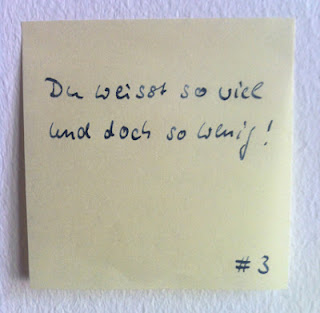 Du weisst so viel
und doch so wenig!
#3